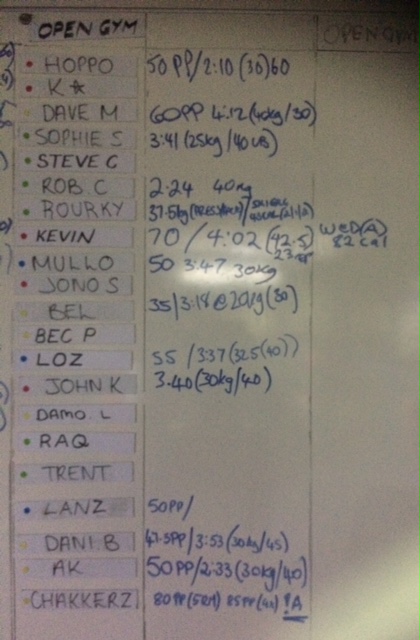 OPEN GYM OPEN GYM
HOPPO 50PP/2:10 (30)60
K☆
DAVE M 60PP 4:12 (40kg/30)
SOPHIE S 3:41 (25kg/40
STEVE C
ROB C 2:24 40kg
ROURKY 37.5kg
KEVIN 70 / 4:02 (42.5) WED(A)
23 82 cal
MULLO 50 3:47 30kg
JONO S
BEL 35/3:18@20kg(30)
BEC P
LOZ 55 /337(32.5(40))
JOHN K 3.40(30kg/40)
DAMO. L
RAQ
TRENT
LANZ 50PP/
DANI.B 47.5PP/3:53(30kg/45)
AK 50PP/2:33(30kg/40)
CHAKKERZ 80PP(5RM) 85PP(4x) !A